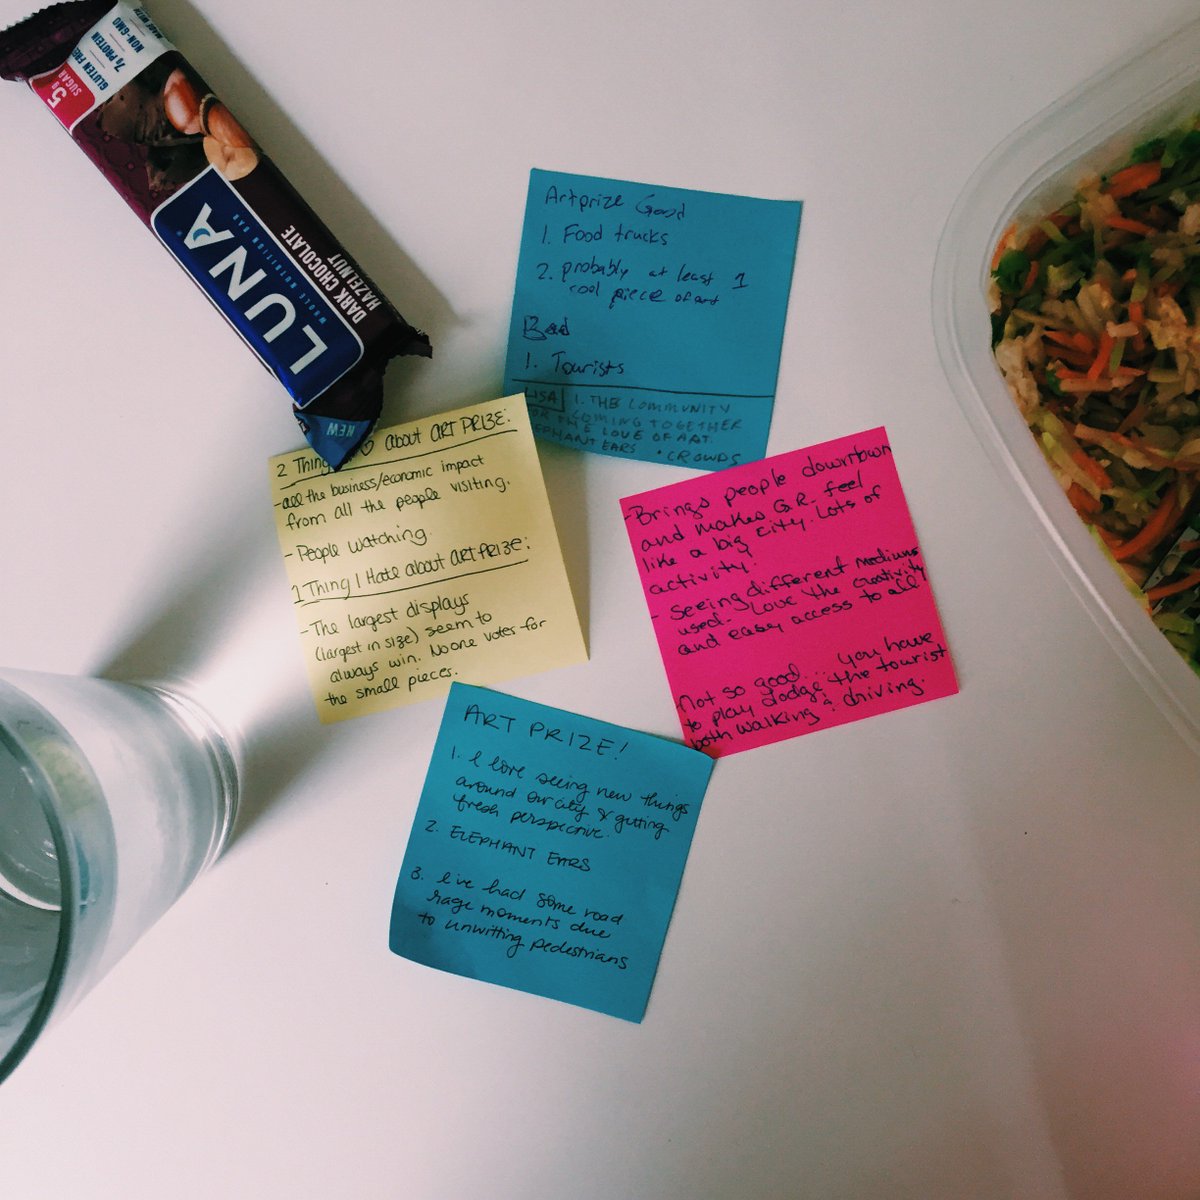 MADE WITH
NON-GMO
7g PROTEIN
GLUTEN FREE
5g
SUGAR
LUNA
WHOLE NUTRITION BAR
DARK CHOCOLATE
HAZELNUT
NEW
Artprize Good
1. Food trucks
2. probably at least 1
cool piece of art
Bad
1. Tourists
LISA 1. THE COMMUNITY
COMING TOGETHER
THE LOVE OF ART.
ELEPHANT EARS • CROWDS
2 Things I ♡ about ART PRIZE:
-all the business/economic impact
from all the people visiting.
- People watching.
1 Thing I Hate about ART PRIZE:
- The largest displays
(largest in size) seem to
always win. No one votes for
the small pieces.
-Brings people downtown
and makes G.R. feel
like a big city. Lots of
activity.
- Seeing different mediums
used. Love the creativity
and easy access to all
Not so good... you have
to play dodge the tourist
both walking & driving.
ART PRIZE!
1. I love seeing new things
around our city & getting
fresh perspective.
2. ELEPHANT EARS
3. I've had some road
rage moments due
to unwitting pedestrians